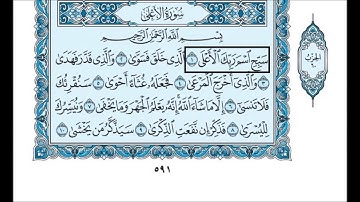 سُورَةُ الأَعْلَى
بِسْمِ اللَّهِ الرَّحْمَنِ الرَّحِيمِ
سَبِّحِ اسْمَ رَبِّكَ الْأَعْلَى ١ الَّذِي خَلَقَ فَسَوَّى ٢ وَالَّذِي قَدَّرَ فَهَدَى
٣ وَالَّذِي أَخْرَجَ الْمَرْعَى ٤ فَجَعَلَهُ غُثَاءً أَحْوَى ٥ سَنُقْرِئُكَ
فَلَا تَنسَى ٦ إِلَّا مَا شَاءَ اللَّهُ إِنَّهُ يَعْلَمُ الْجَهْرَ وَمَا يَخْفَى ٧ وَنُيَسِّرُكَ
لِلْيُسْرَى ٨ فَذَكِّرْ إِن نَّفَعَتِ الذِّكْرَى ٩ سَيَذَّكَّرُ مَن يَخْشَى ١٠
٥٩١
الحزب